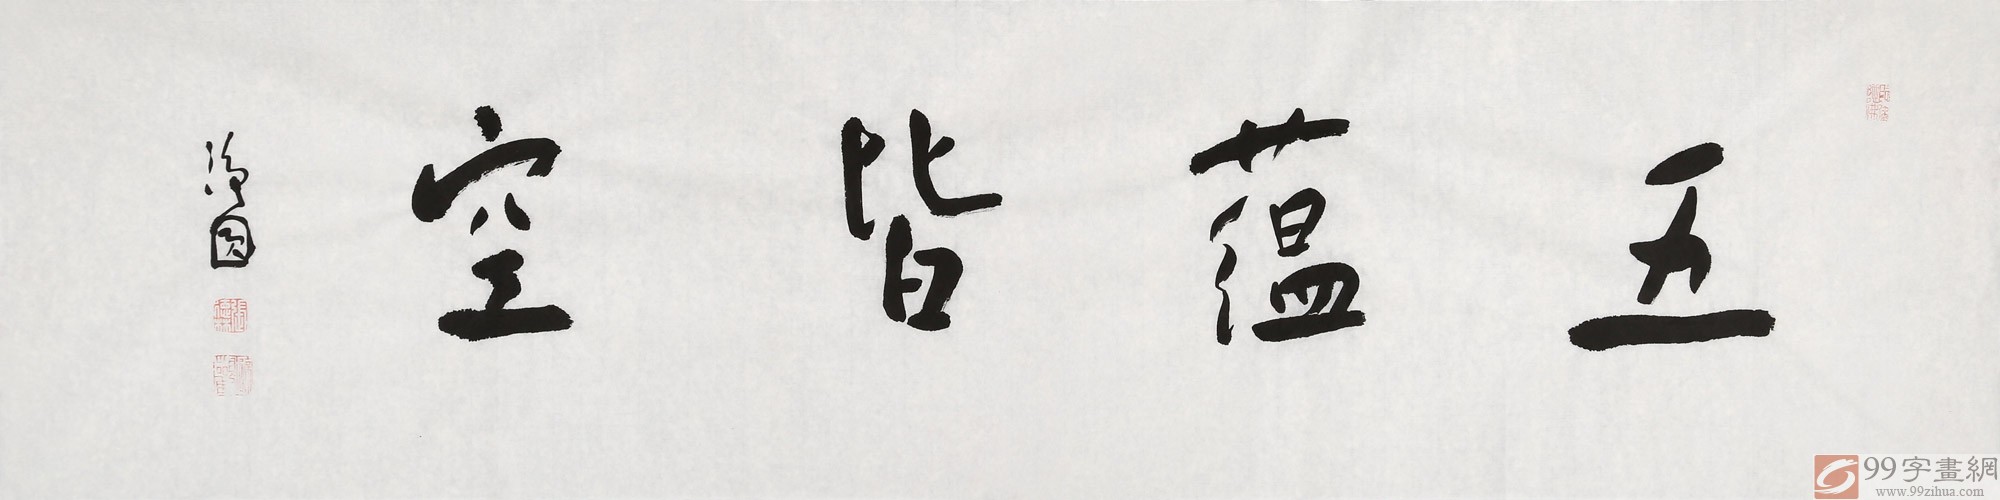 五蘊皆空
淨圓
99字畫網
www.99zihua.com